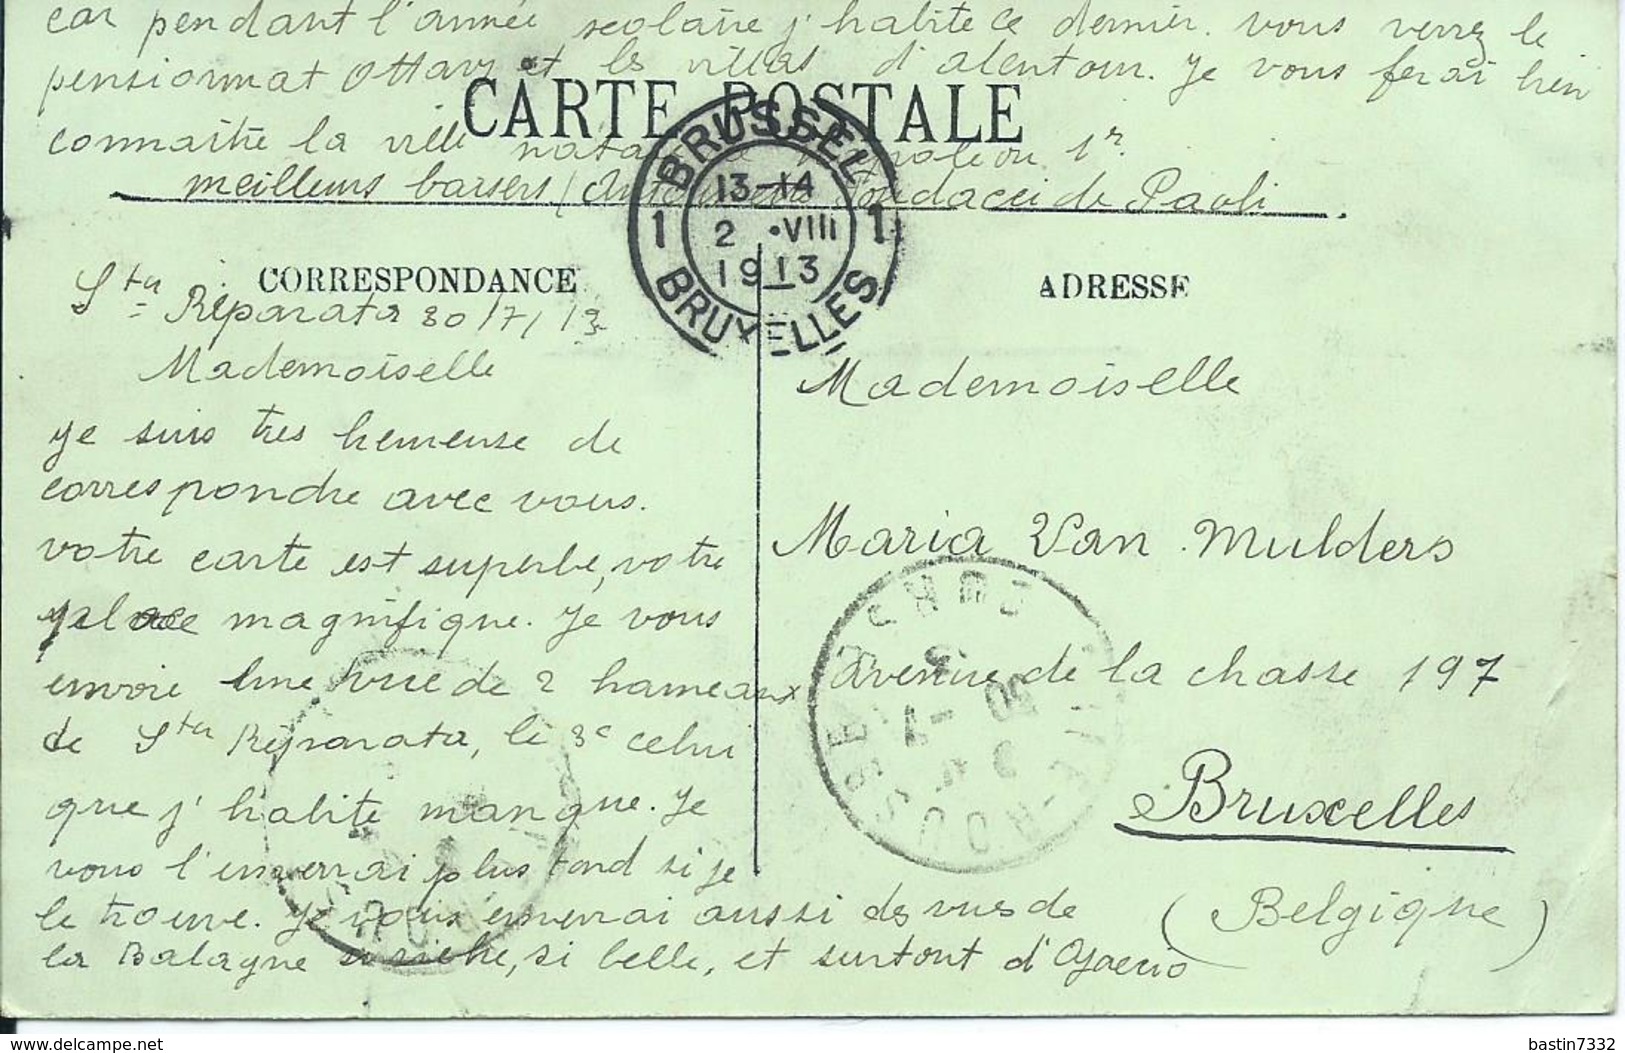 car pendant l'année scolaire j'habite ce dernier. vous verrez le
pensionnat Ottavy et les villas d'alentour. Je vous ferai bien
connaitre la ville natale de Napoléon 1r.
meilleurs baisers / Fondacci de Paoli
CARTE POSTALE
BRUSSEL
13-14
1 2 •VIII 1
1913
BRUXELLES
CORRESPONDANCE
Sta Réparata 30/7/13
Mademoiselle
Je suis tres heureuse de
correspondre avec vous.
votre carte est superbe, votre
magnifique. Je vous
envoie une vue de 2 hameaux
de Sta Réparata, le 3e celui
que j'habite manque. Je
vous l'enverrai plus tard si je
le trouve. Je vous enverrai aussi des vues de
la Balagne si riche, si belle, et surtout d'Ajaccio
ADRESSE
Mademoiselle
Maria Van Mulders
avenue de la chasse 197
Bruxelles
(Belgique)
bastin7332